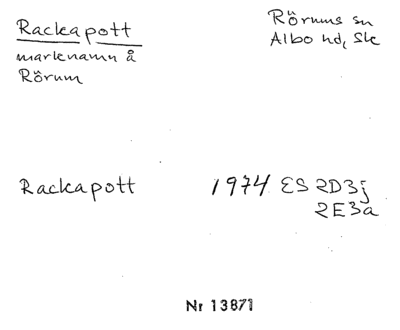 Rackapott
marknamn å
Rörum
Rörums sn
Albo hd, Ske
Rackapott 1974 ES 2D3j
2E3a
Nr 13871